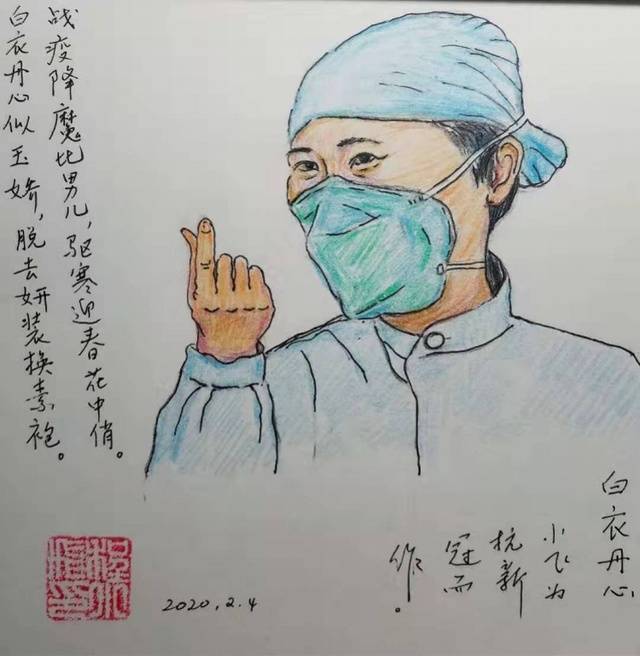 白衣丹心似玉娇，脱去妍装换素袍。
战疫降魔比男儿，驱寒迎春花中俏。
白衣丹心
小飞为
抗新
冠而
作。
2020.2.4